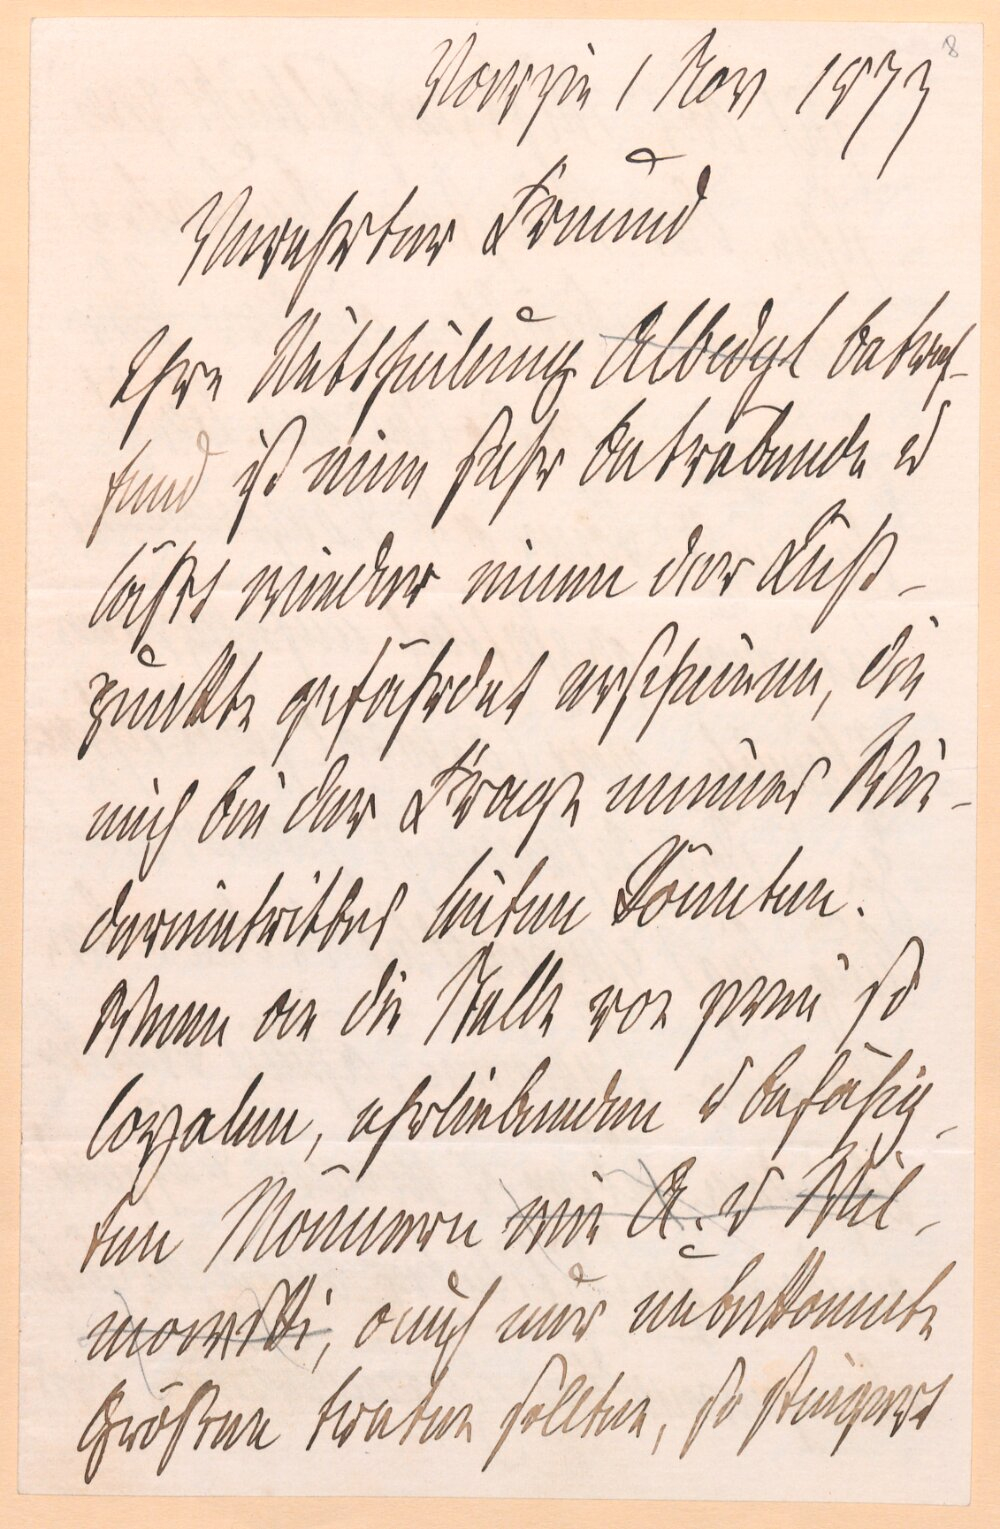 8
Varzin 1 Nov 1877
Verehrter Freund
Ihre Mittheilung Albedyl betref-
fend ist eine sehr betrübende u
läßt wieder einen der Licht-
punkte gefährdet erscheinen, die
mich bei der Frage meines Wie-
dereintrittes leiten könnten.
Wenn an die Stelle von zwei so
loyalen, ehrliebenden u befähig-
ten Männern wie A. u Wil-
mowski, auch nur unbekannte
Größen treten sollten, so steigert